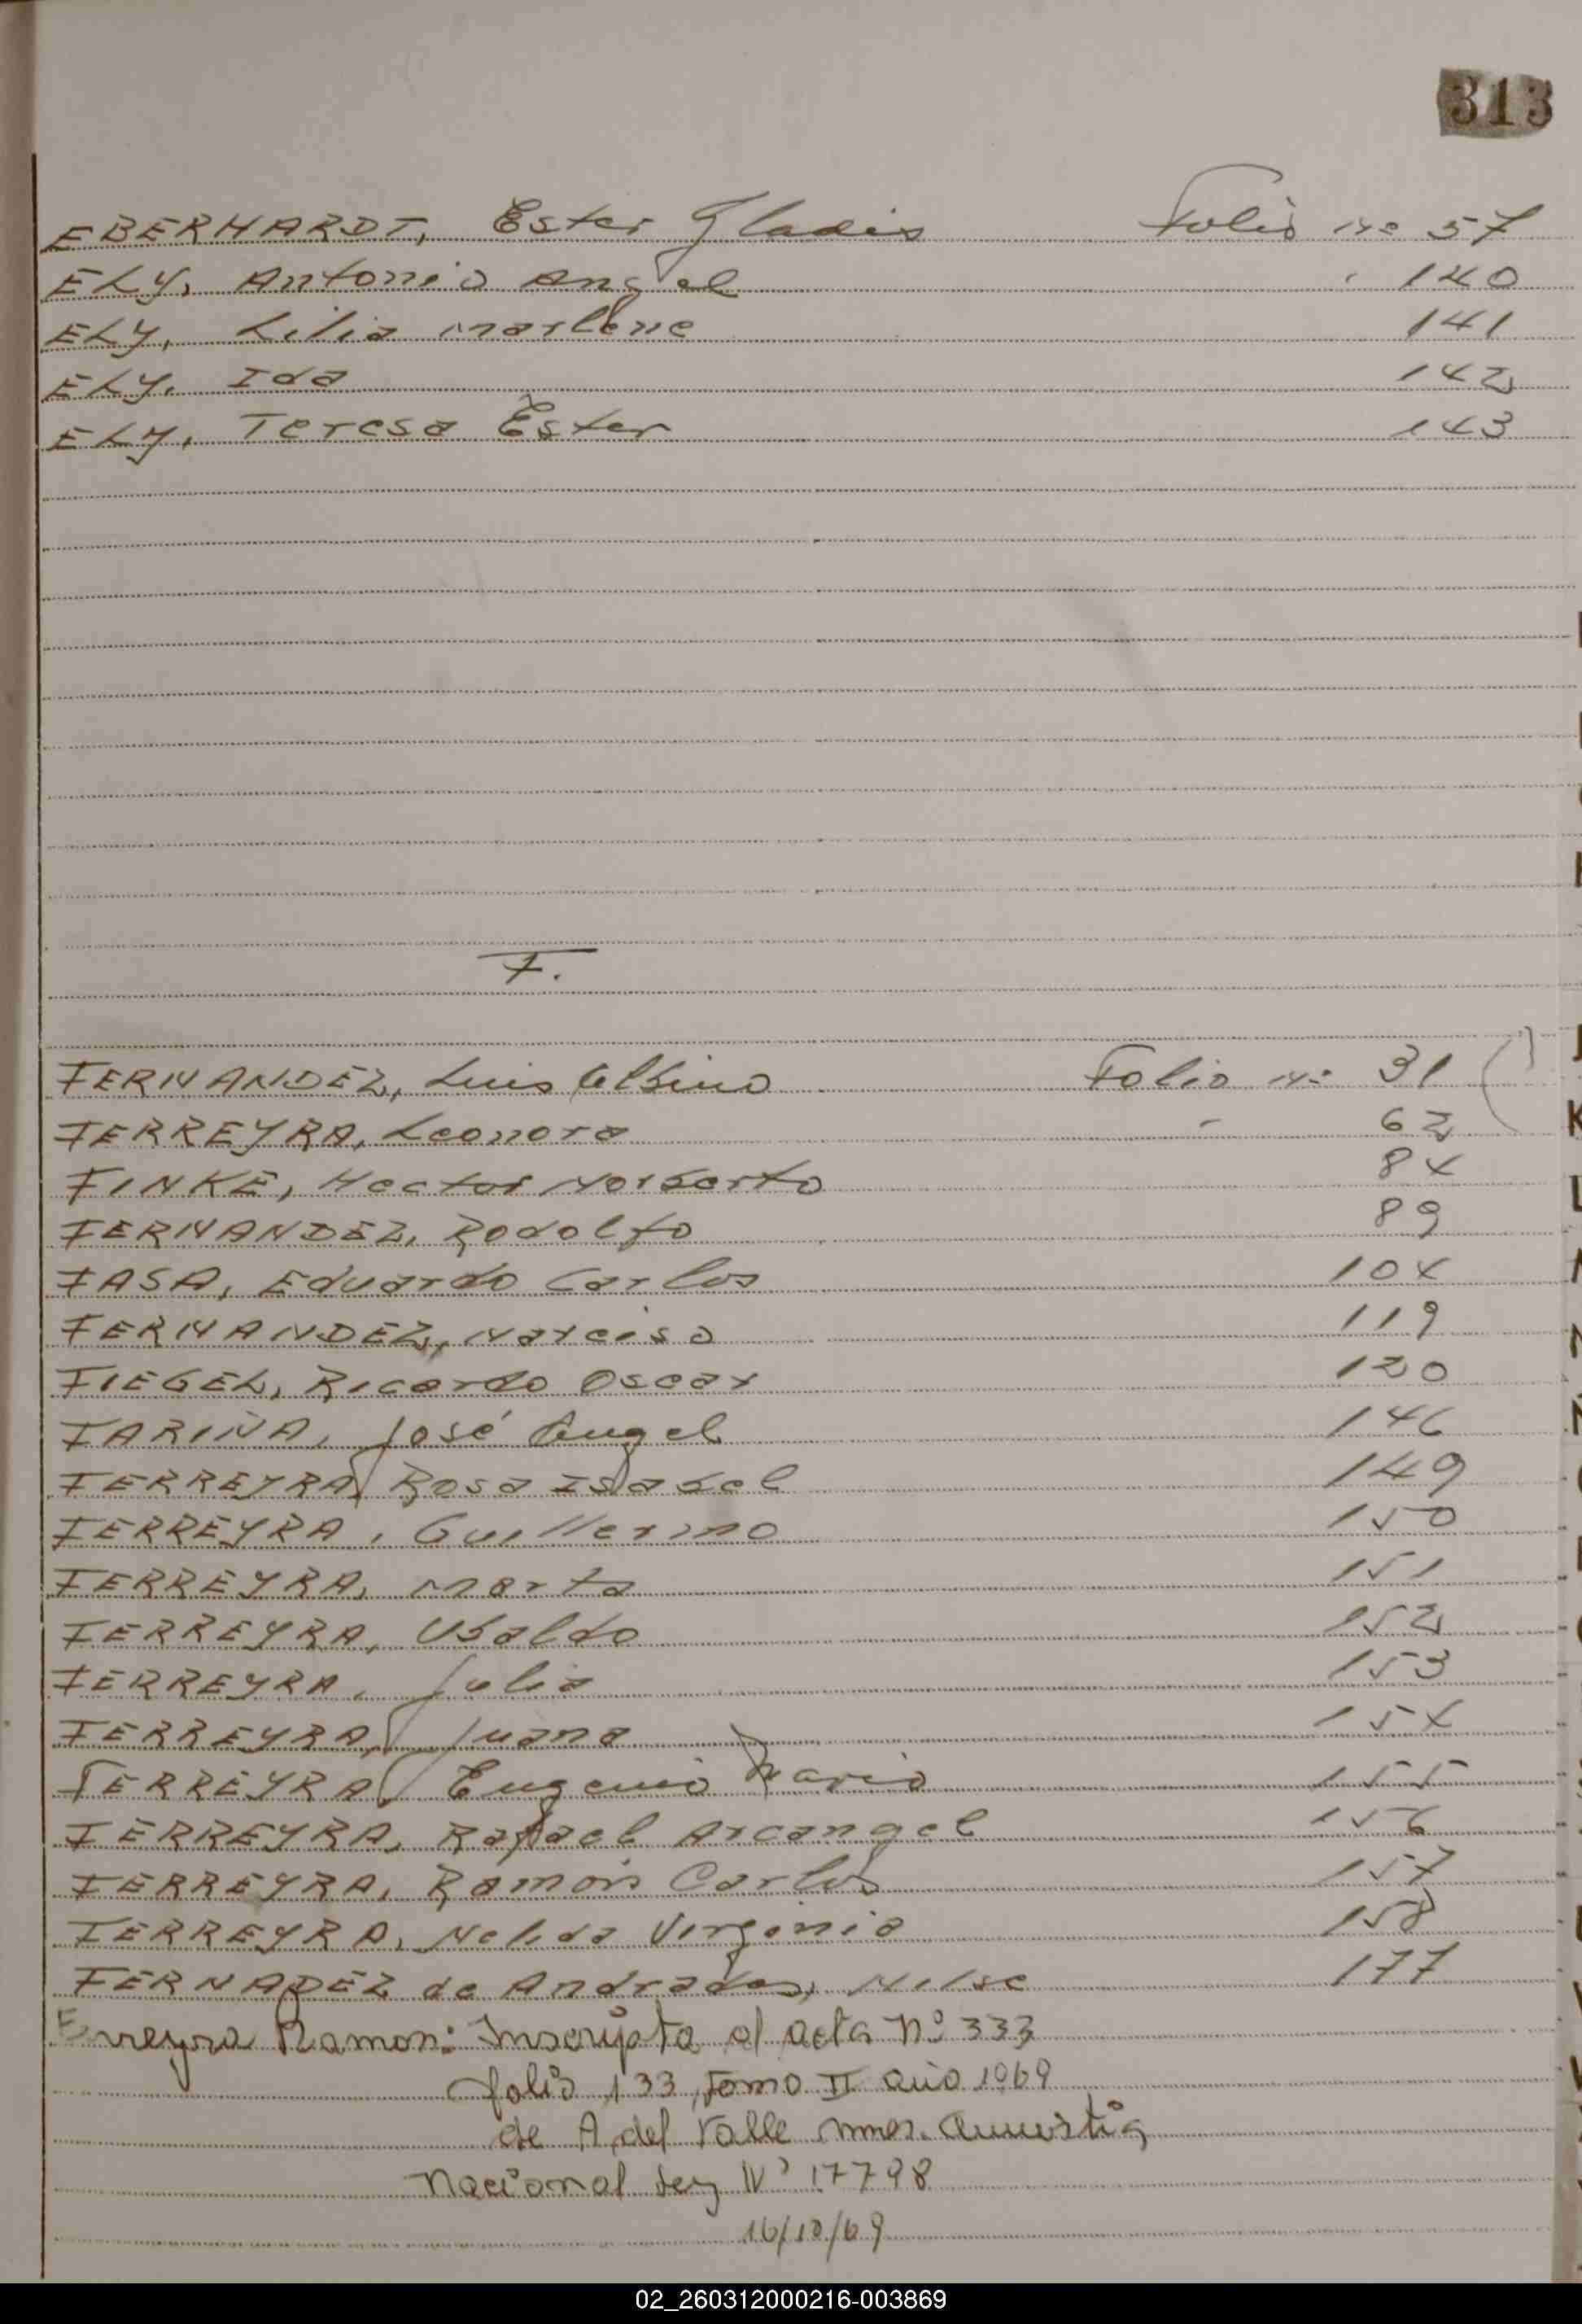 313
EBERHARDT, Ester Gladis Folio Nº 57
ELY, Antonio Angel 140
ELY, Lilia Marlene 141
ELY, Ida 142
ELY, Teresa Ester 143
F.
FERNANDEZ, Luis Albino Folio Nº 31
FERREYRA, Leonora 62
FINKE, Hector Norberto 84
FERNANDEZ, Rodolfo 89
FASA, Eduardo Carlos 104
FERNANDEZ, Narciso 119
FIEGEL, Ricardo Oscar 120
FARIÑA, José Angel 146
FERREYRA, Rosa Isabel 149
FERREYRA, Guillermo 150
FERREYRA, Marta 151
FERREYRA, Ubaldo 152
FERREYRA, Julia 153
FERREYRA, Juana 154
FERREYRA, Eugenio Dario 155
FERREYRA, Rafael Arcangel 156
FERREYRA, Ramón Carlos 157
FERREYRA, Nelida Virginia 158
FERNADEZ de Andrades, Nelse 177
Ferreyra Ramon: Inscripta al acta Nº 333
folio 133, tomo II año 1969
de A. del Valle
Nacional Ley Nº 17798
16/10/69
02_260312000216-003869